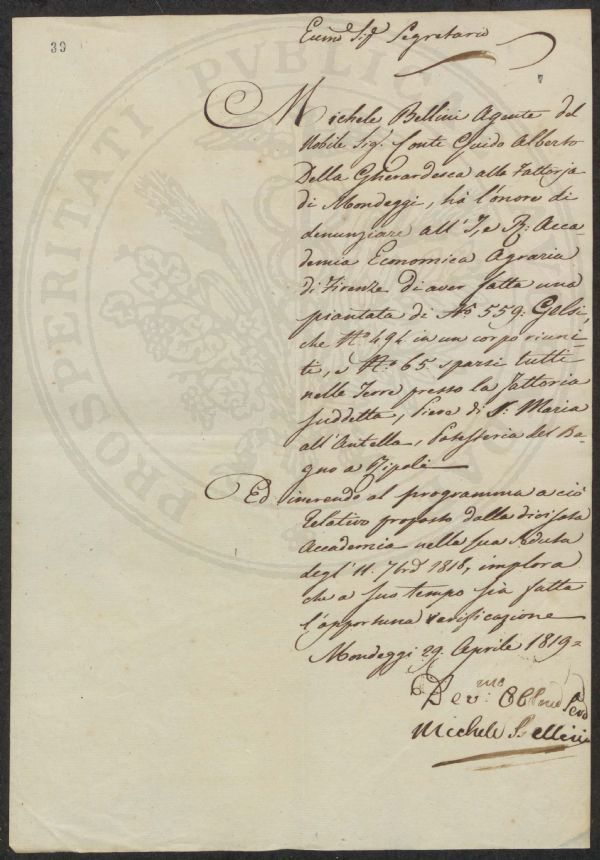 39
Ecc.mo Sig.r Segretario
7
Michele Bellini Agente del
Nobile Sig.r Conte Guido Alberto
Della Gherardesca alla Fattoria
di Mondeggi, hà l'onore di
denunziare all'I. e R. Acca-
demia Economica Agraria
di Firenze di aver fatta una
piantata di N.o 559. Gelsi,
che N.o 494 in un corpo riuni-
ti, e N.o 65. sparsi tutti
nelle Terre presso la Fattoria
suddetta, Pieve di S. Maria
all'Antella, Potesteria del Ba-
gno a Ripoli
Ed inerendo al programma a ciò
relativo proposto dalla divisata
Accademia nella sua seduta
degl'11. 7bre 1818, implora
che a suo tempo sia fatta
l'opportuna verificazione
Mondeggi 29. Aprile 1819=
Dev.mo Obb.mo Serv.
Michele Bellini
PROSPERITATI PUBLICAE